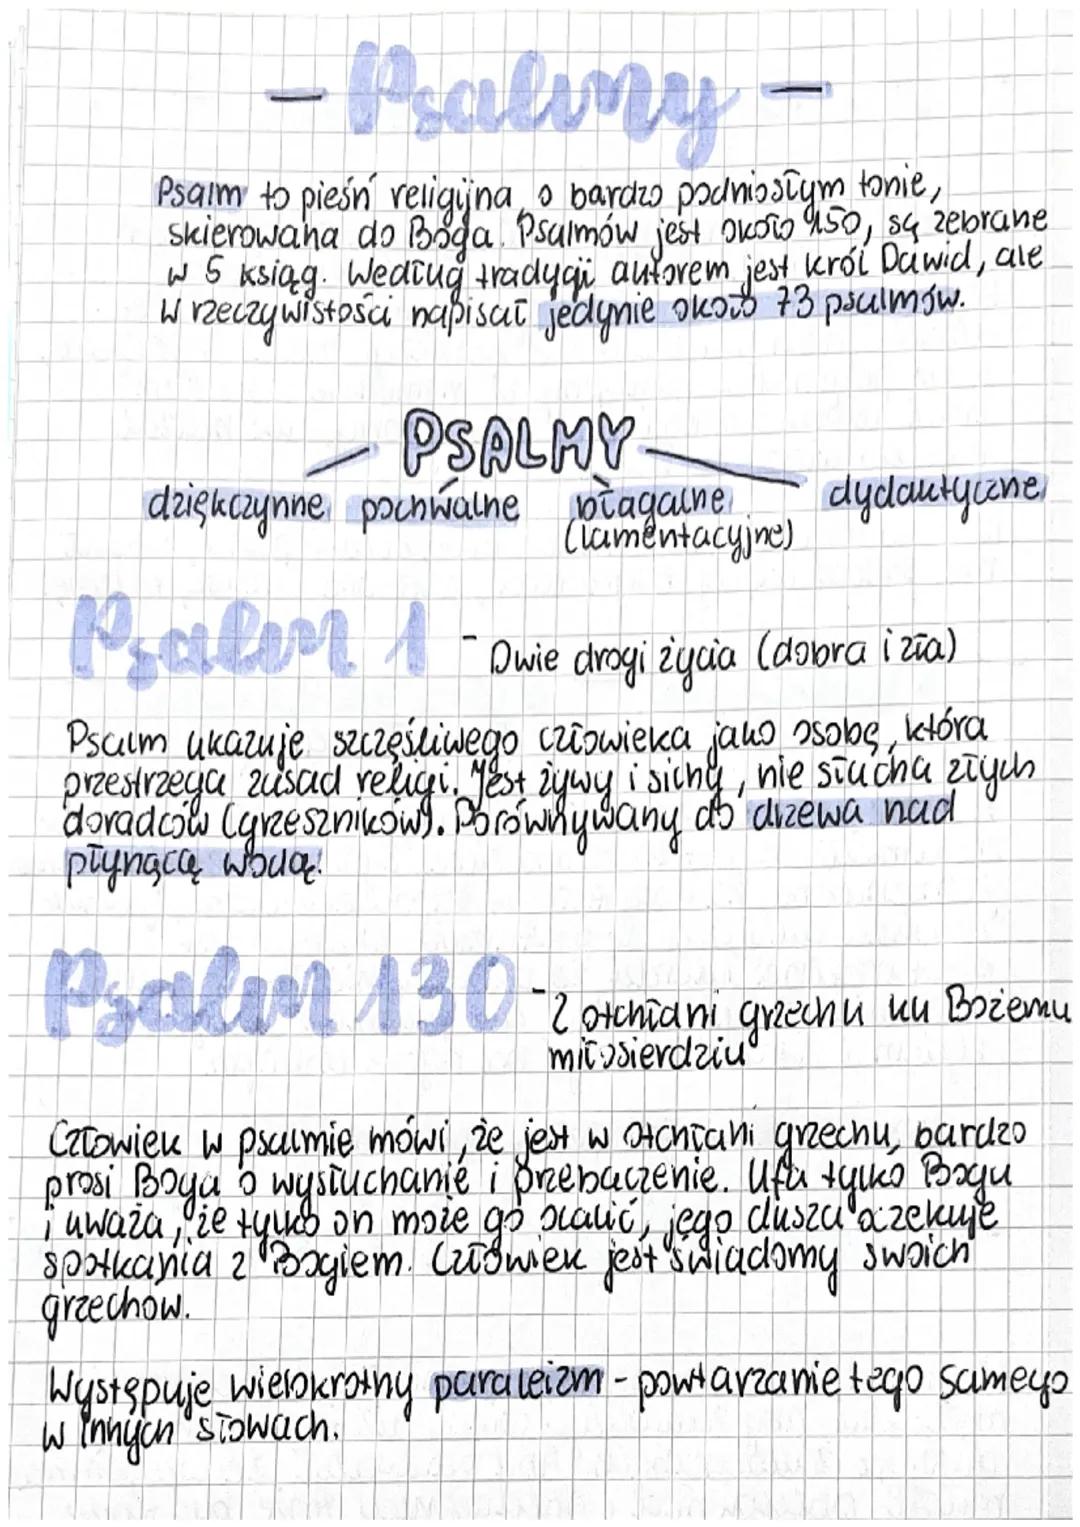 - Psalmy -
Psalm to pieśń religijna o bardzo podniosłym tonie,
skierowana do Boga. Psalmów jest około 150, są zebrane
w 5 ksiąg. Według tradycji autorem jest król Dawid, ale
w rzeczywistości napisał jedynie około 73 psalmów.
PSALMY
dziękczynne pochwalne błagalne dydaktyczne
(lamentacyjne)
Psalm 1 - Dwie drogi życia (dobra i zła)
Psalm ukazuje szczęśliwego człowieka jako osobę, która
przestrzega zasad religi. Jest żywy i silny, nie słucha złych
doradców (grzeszników). Porównywany do drzewa nad
płynącą wodą.
Psalm 130 - Z otchłani grzechu ku Bożemu
miłosierdziu
Człowiek w psalmie mówi, że jest w otchłani grzechu, bardzo
prosi Boga o wysłuchanie i przebaczenie. Ufa tylko Bogu
i uważa, że tylko on może go ocalić, jego dusza oczekuje
spotkania z Bogiem. Człowiek jest świadomy swoich
grzechow.
Występuje wielokrotny paraleizm - powtarzanie tego samego
w innych słowach.